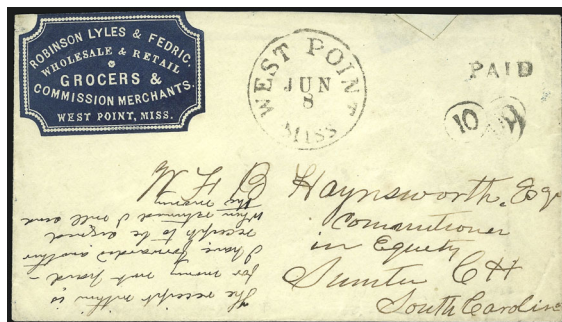 ROBINSON LYLES & FEDRIC.
WHOLESALE & RETAIL
GROCERS &
COMMISSION MERCHANTS.
WEST POINT, MISS.
WEST POINT
JUN
8
MISS
PAID
10
Haynsworth, Esqr
Commissioner
in Equity
Sumter C H
South Carolina
The receipt within is
for money not paid -
I have forwarded another
receipt to be signed
When returned I will send
the money